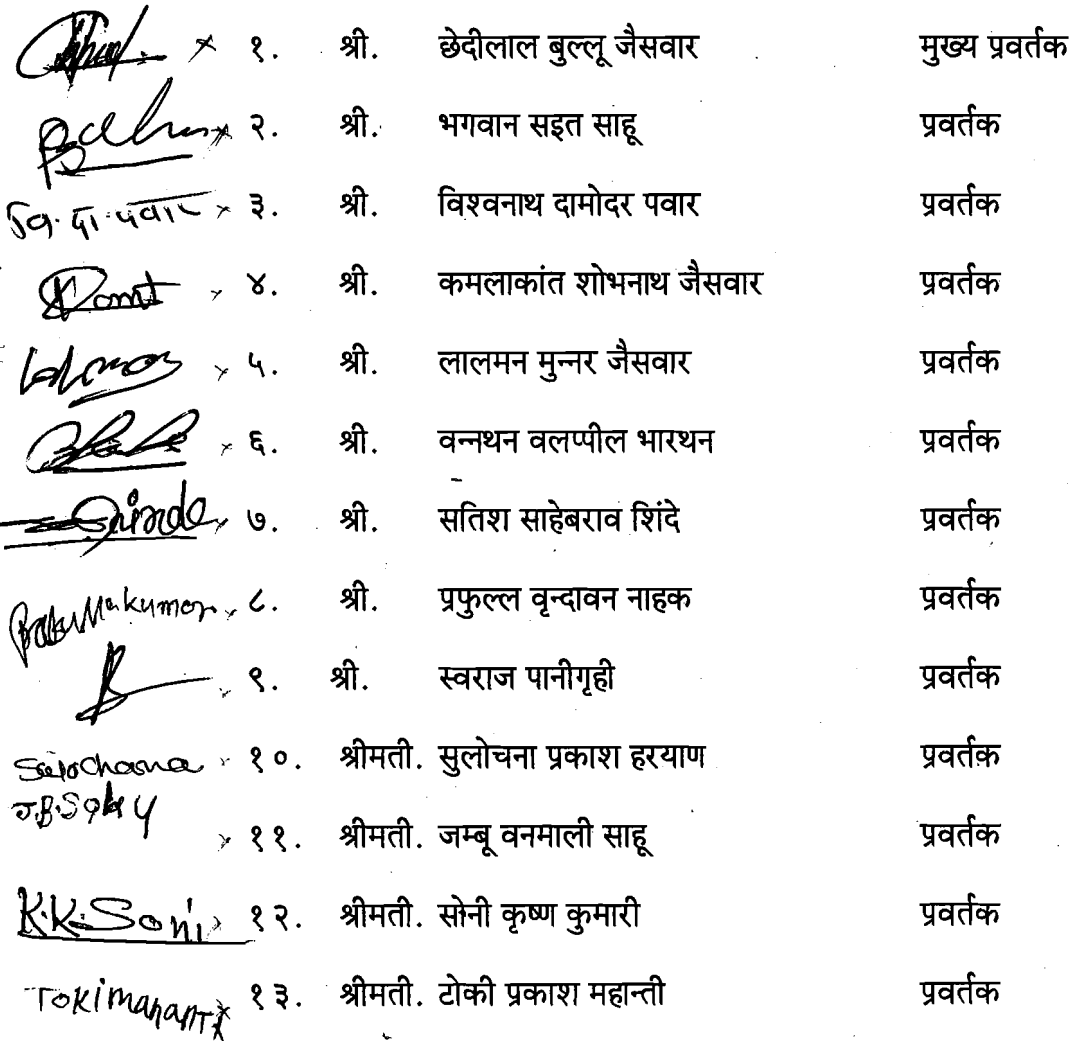 × १. श्री. छेदीलाल बुल्लू जैसवार मुख्य प्रवर्तक
× २. श्री. भगवान सइत साहू प्रवर्तक
वि. दा. पवार × ३. श्री. विश्वनाथ दामोदर पवार प्रवर्तक
४. श्री. कमलाकांत शोभनाथ जैसवार प्रवर्तक
× ५. श्री. लालमन मुन्नर जैसवार प्रवर्तक
× ६. श्री. वन्नथन वलप्पील भारथन प्रवर्तक
७. श्री. सतिश साहेबराव शिंदे प्रवर्तक
८. श्री. प्रफुल्ल वृन्दावन नाहक प्रवर्तक
९. श्री. स्वराज पानीगृही प्रवर्तक
१०. श्रीमती. सुलोचना प्रकाश हरयाण प्रवर्तक
J.B.Sahu × ११. श्रीमती. जम्बू वनमाली साहू प्रवर्तक
K.K.Soni १२. श्रीमती. सोनी कृष्ण कुमारी प्रवर्तक
× १३. श्रीमती. टोकी प्रकाश महान्ती प्रवर्तक